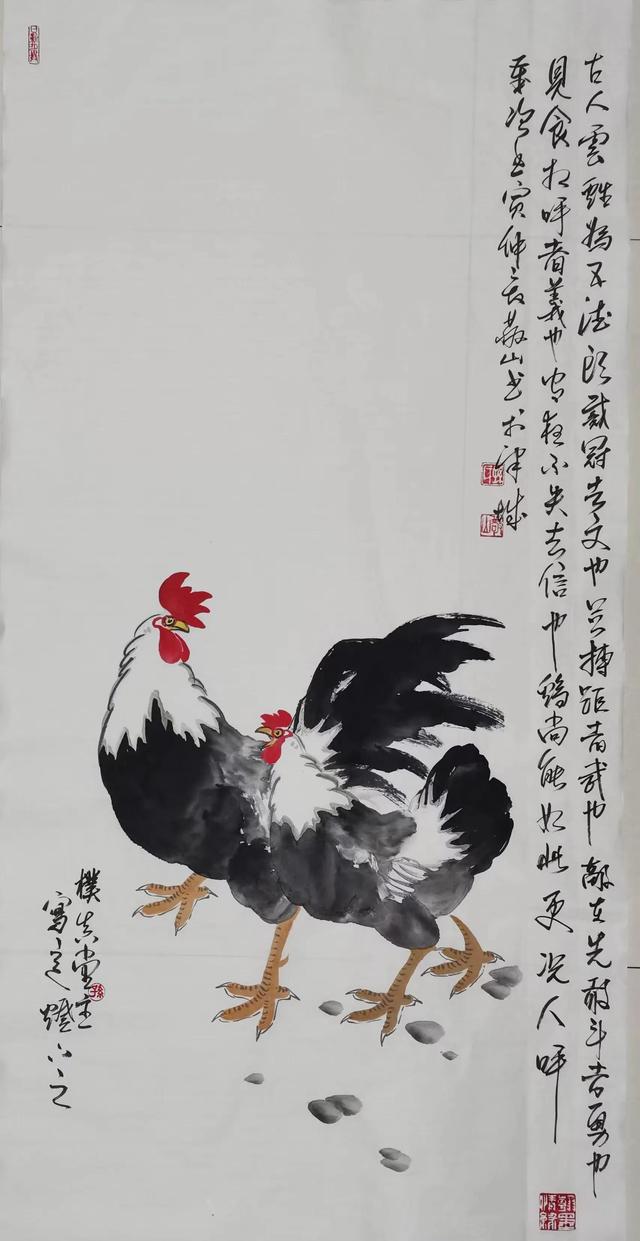 古人雲雞為五德頭戴冠者文也足搏距者武也敵在先敢斗者勇也
見食相呼者義也守夜不失者信也雞尚能如此更況人呼
歲次壬寅仲山書於津城
樸真堂主
寫燈下之
孫